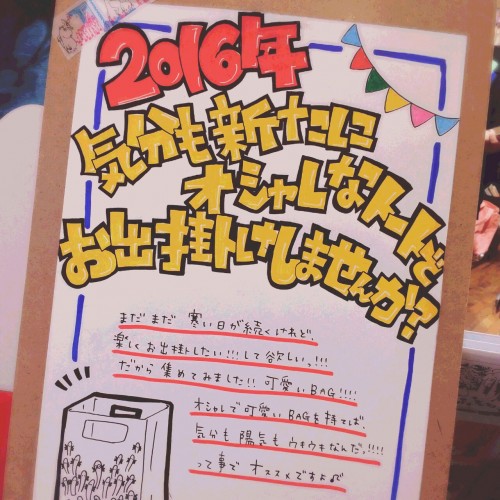 2016年
気分も新たに
オシャレなトートで
お出掛けしませんか?
まだまだ 寒い日が続くけれど、
楽しくお出掛したい!!!して欲しいっ!!!
だから集めてみました!!可愛いBAG!!!!
オシャレで可愛いBAGを持てば、
気分も陽気もウキウキなんだ。!!!!
って事でオススメですよ♪